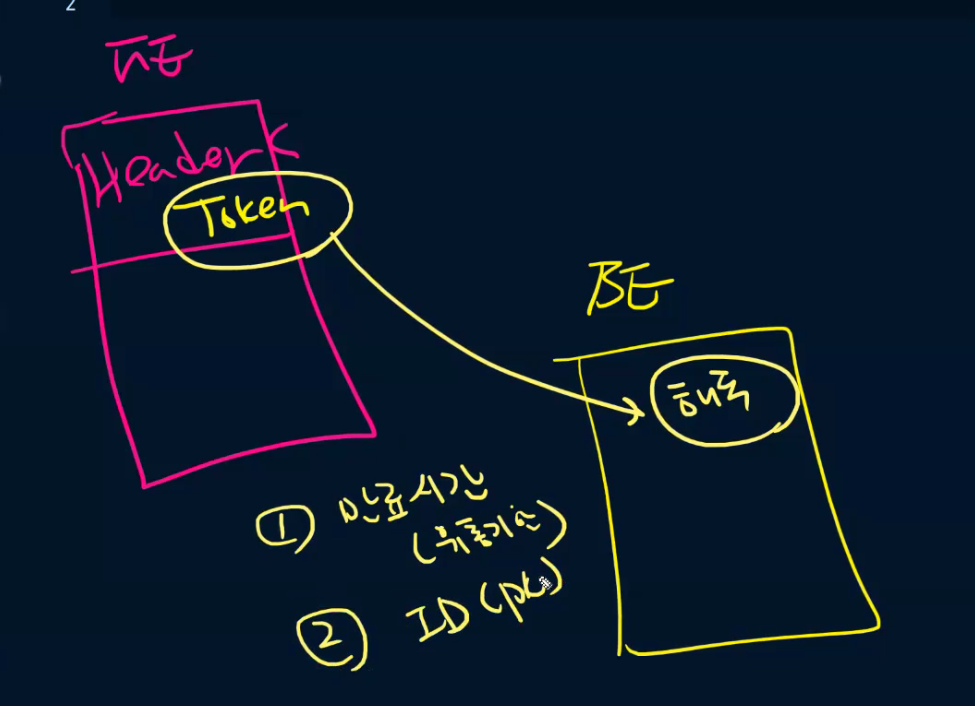 2
FE
Header
Token
BE
해독
① 만료시간
(유통기한)
② ID (pk)